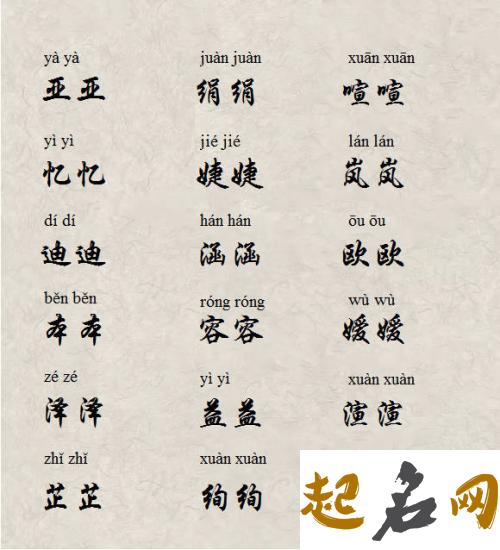 yà yà juàn juàn xuān xuān
亚亚 绢绢 喧喧
yì yì jié jié lán lán
忆忆 婕婕 岚岚
dí dí hán hán ōu ōu
迪迪 涵涵 欧欧
běn běn róng róng wù wù
本本 容容 媛媛
zé zé yì yì xuàn xuàn
泽泽 益益 渲渲
zhǐ zhǐ xuàn xuàn
芷芷 绚绚
起名网